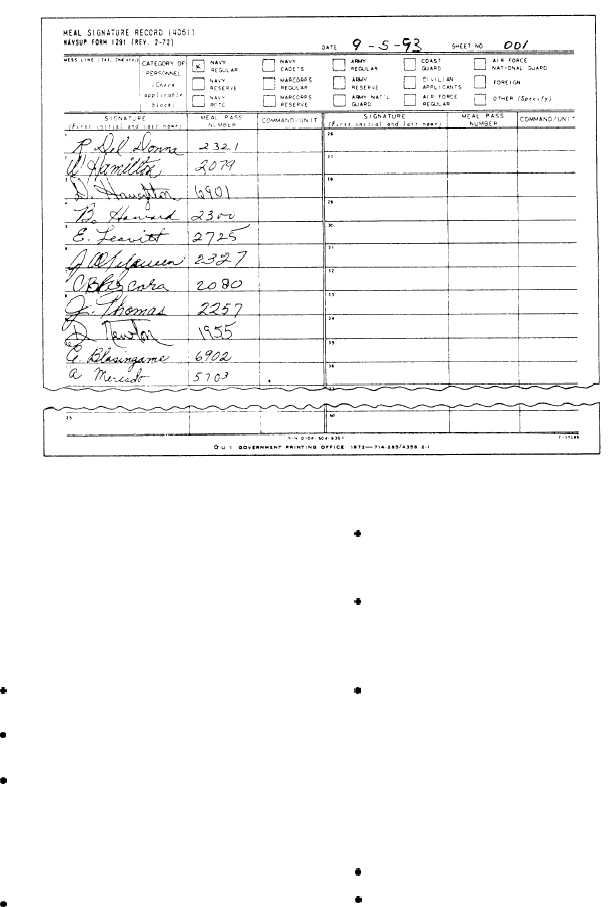 MEAL SIGNATURE RECORD (4061)
NAVSUP FORM 1291 (REV. 2-72)
DATE 9-5-93 SHEET NO. 001
CATEGORY OF PERSONNEL (Check applicable block)
x NAVY REGULAR
NAVY CADETS
ARMY REGULAR
COAST GUARD
AIR FORCE NATIONAL GUARD
NAVY RESERVE
MARCORPS REGULAR
ARMY RESERVE
CIVILIAN APPLICANTS
FOREIGN
NAVY ROTC
MARCORPS RESERVE
ARMY NAT'L GUARD
AIR FORCE REGULAR
OTHER (Specify)
SIGNATURE (First initial and last name) MEAL PASS NUMBER COMMAND/UNIT SIGNATURE (First initial and last name) MEAL PASS NUMBER COMMAND/UNIT
R Del Donna 2321 26
W Hamilton 2079 27
D. Haughton 6901 28
B. Howard 2300 29
E. Leavitt 2725 30
2327 31
2080 32
J. Thomas 2257 33
D. Newton 1955 34
G. Blasingame 6902 35
A Mercado 5703 36
25 50
U.S. GOVERNMENT PRINTING OFFICE 1972—714-285/4358 2-1